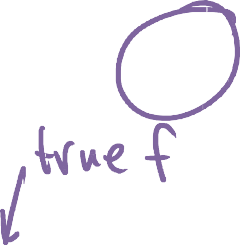 true f